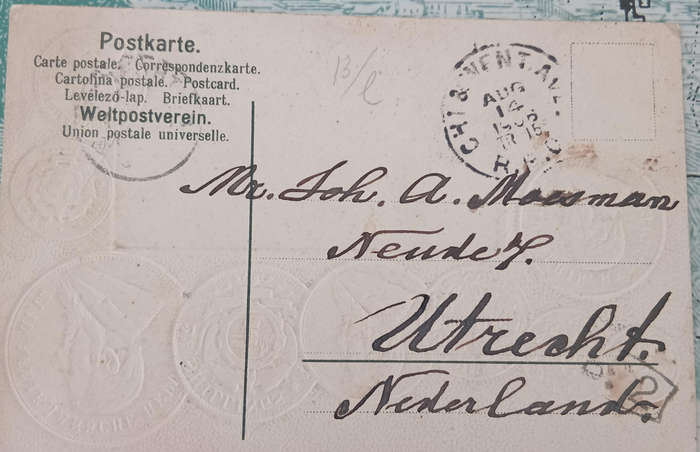 Postkarte.
Carte postale. Correspondenzkarte.
Cartolina postale. Postcard.
Levelező-lap. Briefkaart.
Weltpostverein.
Union postale universelle.
B/e
CHI & WENT. AVE.
AUG
14
R.P.O.
Mr. Joh. A. Moesman
Neude 7.
Utrecht.
Nederland.